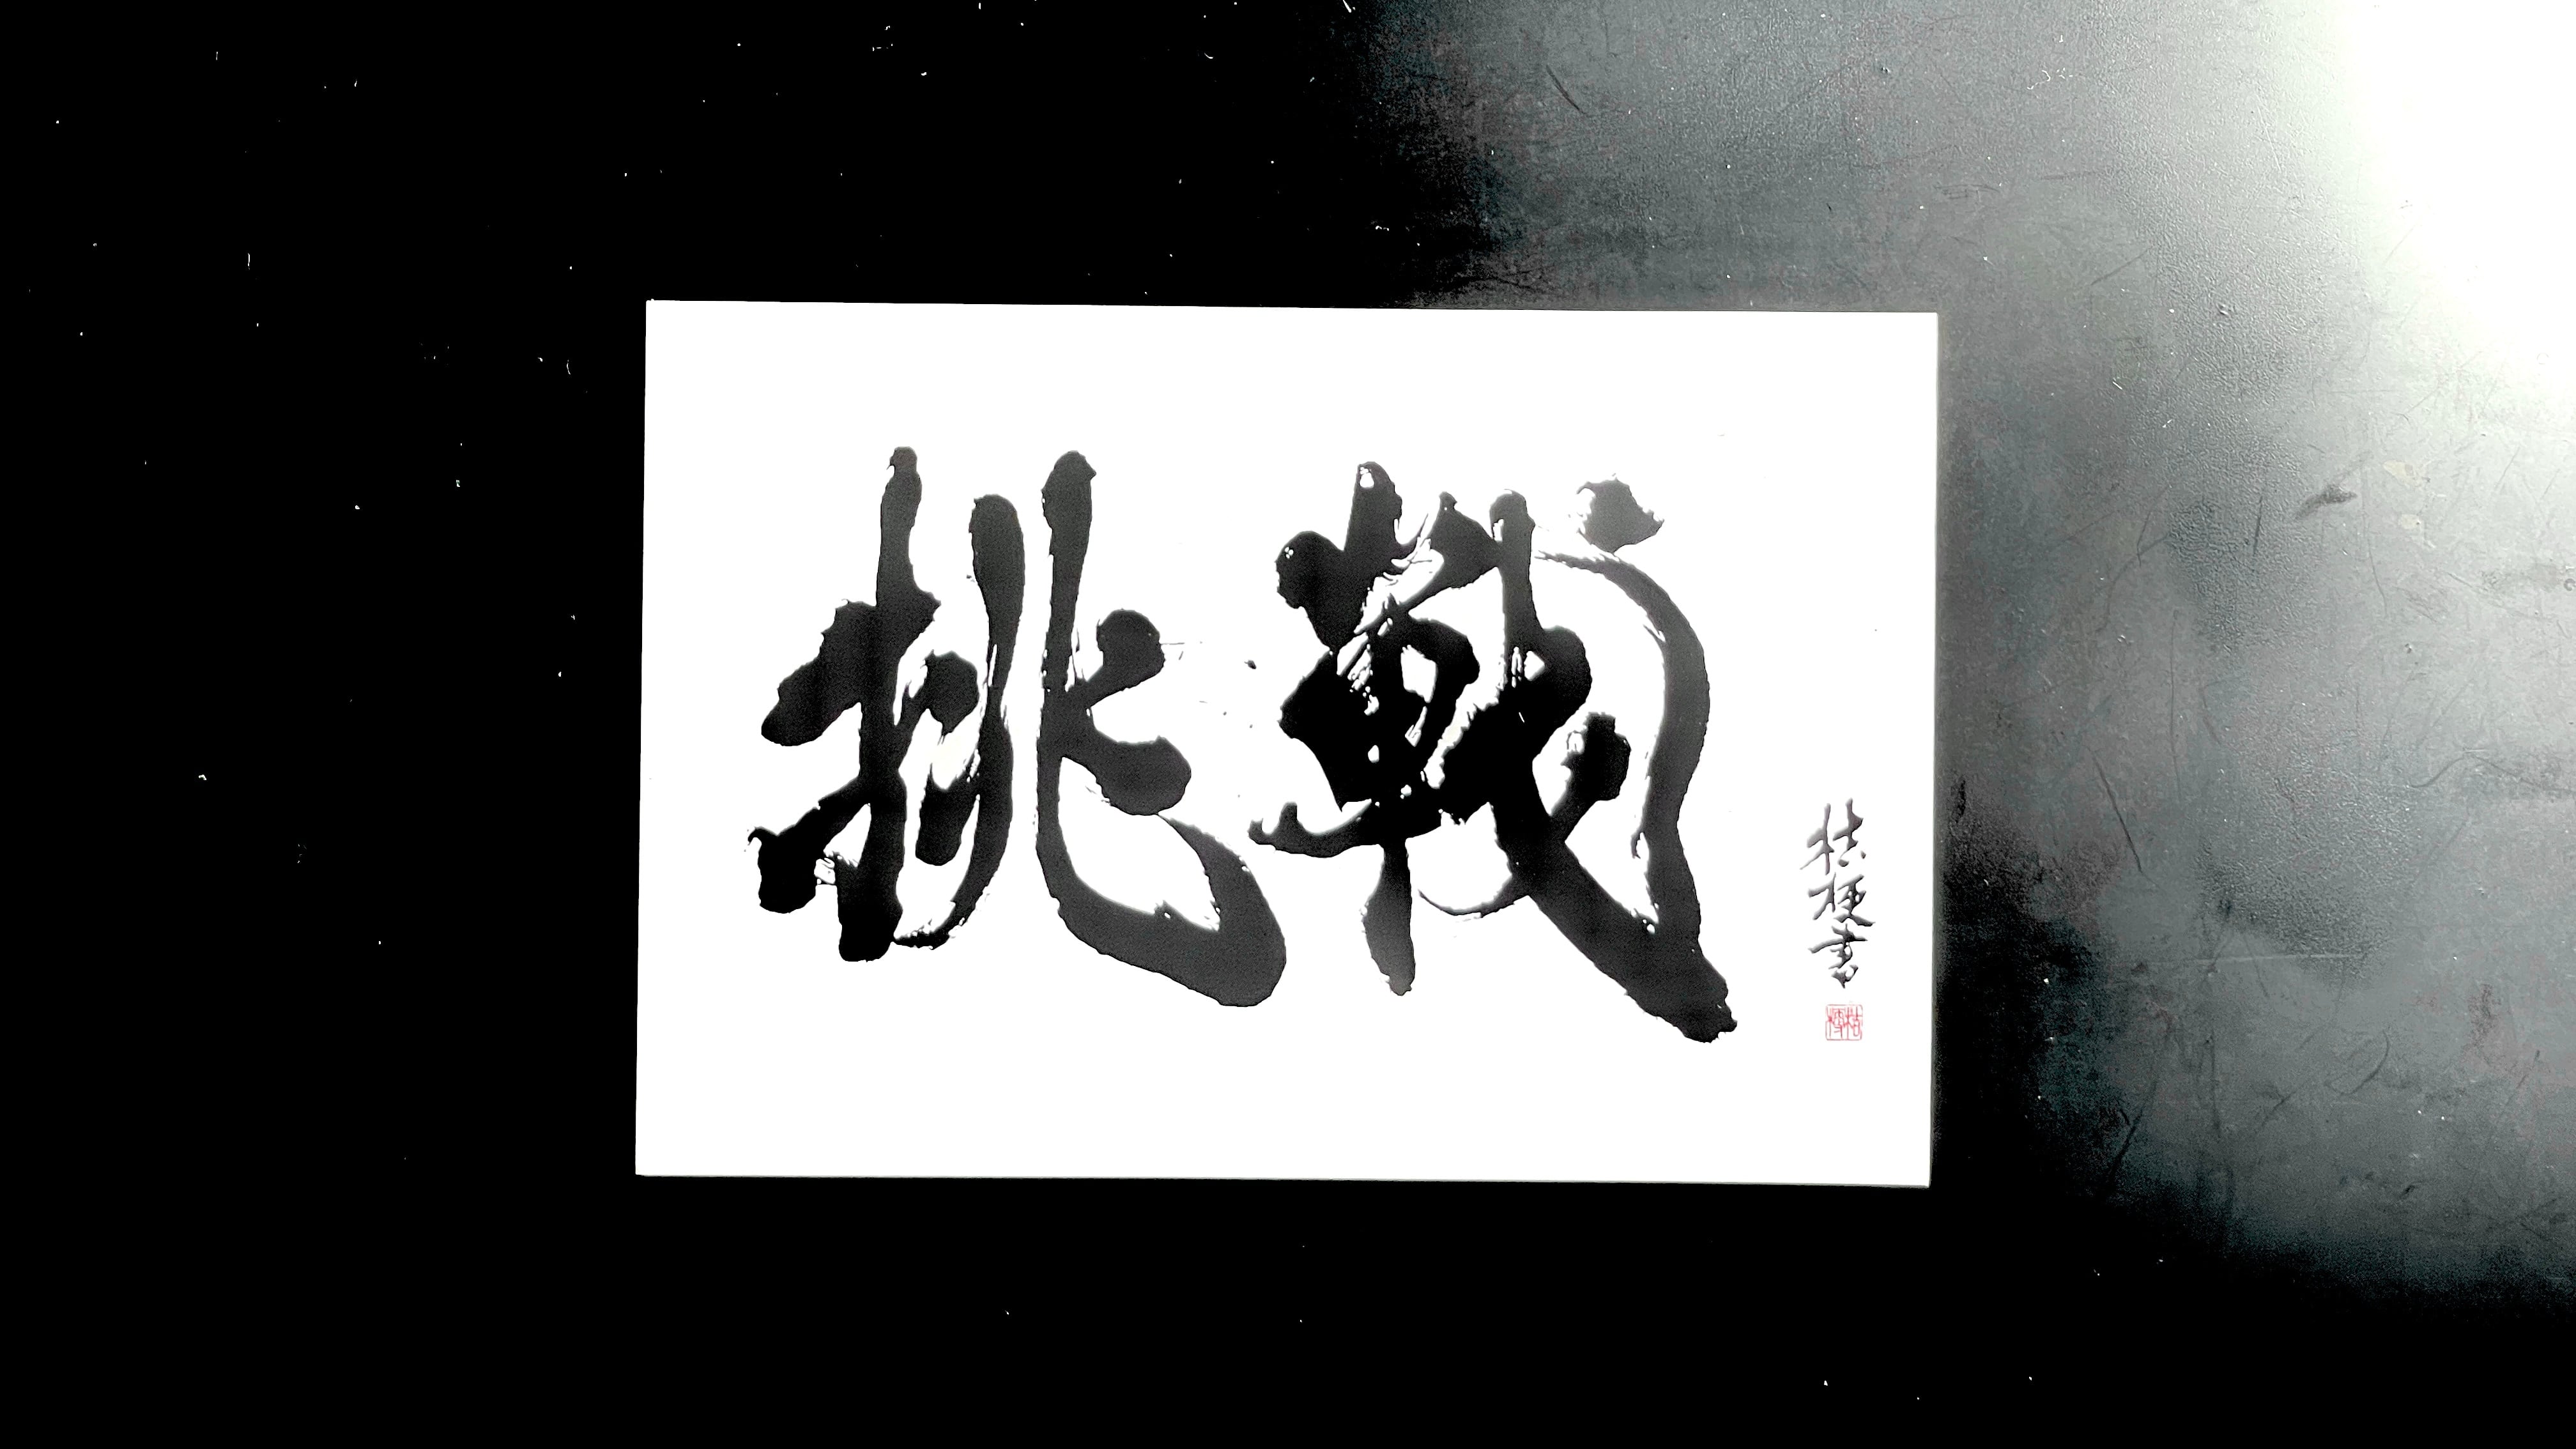 挑戦
桔梗書